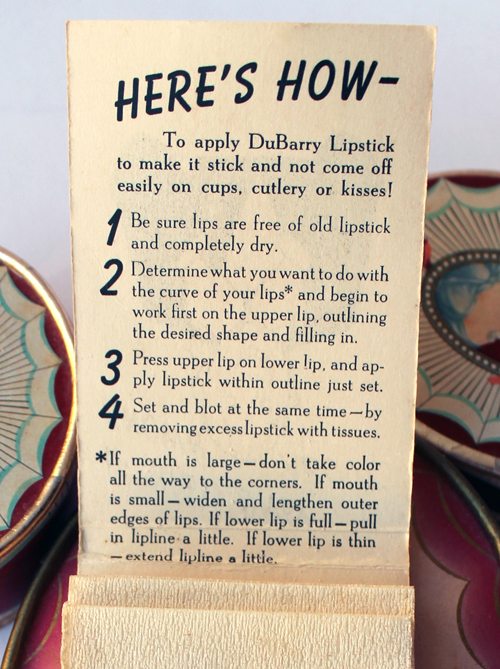 HERE'S HOW–
To apply DuBarry Lipstick
to make it stick and not come off
easily on cups, cutlery or kisses!
1 Be sure lips are free of old lipstick
and completely dry.
2 Determine what you want to do with
the curve of your lips* and begin to
work first on the upper lip, outlining
the desired shape and filling in.
3 Press upper lip on lower lip, and ap-
ply lipstick within outline just set.
4 Set and blot at the same time—by
removing excess lipstick with tissues.
*If mouth is large—don't take color
all the way to the corners. If mouth
is small—widen and lengthen outer
edges of lips. If lower lip is full—pull
in lipline a little. If lower lip is thin
—extend lipline a little.